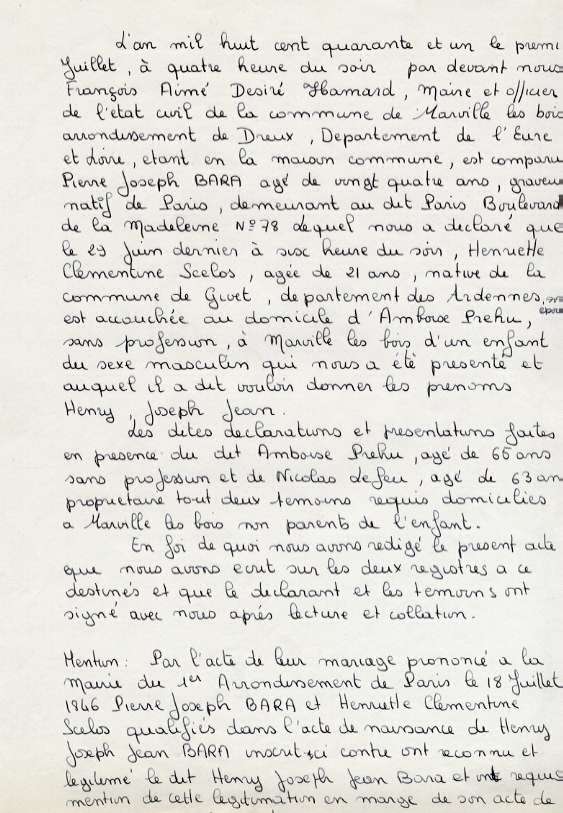 L'an mil huit cent quarante et un le premi
Juillet, à quatre heure du soir par devant nous
François Aimé Desiré Hamard, Maire et officier
de l'état civil de la commune de Marville les bois
arrondissement de Dreux, Departement de l'Eure
et Loire, etant en la maison commune, est comparu
Pierre Joseph BARA agé de vingt quatre ans, graveur
natif de Paris, demeurant au dit Paris Boulevard
de la Madeleine N°78 Lequel nous a declaré que
le 29 Juin dernier à six heure du soir, Henriette
Clementine Scelos, agée de 21 ans, native de la
commune de Givet, departement des Ardennes, son
épouse
est accouchée au domicile d'Amboise Prehu,
sans profession, à Marville les bois d'un enfant
du sexe masculin qui nous a été presenté et
auquel il a dit vouloir donner les prenoms
Henry, Joseph Jean.
Les dites declarations et presentations faites
en presence du dit Amboise Prehu, agé de 65 ans
sans profession et de Nicolas Lefeu, agé de 63 an
proprietaire tout deux temoins requis domiciliés
a Marville les bois non parents de l'enfant.
En foi de quoi nous avons redigé le present acte
que nous avons ecrit sur les deux registres a ce
destinés et que le declarant et les temoins ont
signé avec nous aprés lecture et collation.
Mention: Par l'acte de leur mariage prononcé a la
Mairie du 1er Arrondissement de Paris le 18 Juillet
1846 Pierre Joseph BARA et Henriette Clementine
Scelos qualifiés dans l'acte de naissance de Henry
Joseph Jean BARA inscrit ci contre ont reconnu et
legitimé le dit Henry Joseph Jean Bara et ont requis
mention de cette legitimation en marge de son acte de